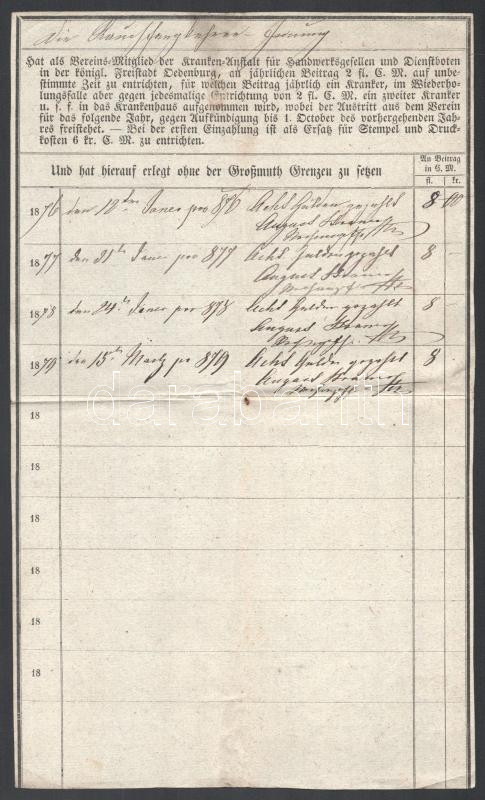 Die Rauchfangkehrer-Innung
Hat als Vereins-Mitglied der Kranken-Anstalt für Handwerksgesellen und Dienstboten
in der königl. Freistadt Oedenburg, an jährlichen Beitrag 2 fl. C. M. auf unbe-
stimmte Zeit zu entrichten, für welchen Beitrag jährlich ein Kranker, im Wiederho-
lungsfalle aber gegen jedesmalige Entrichtung von 2 fl. C. M. ein zweiter Kranker
u. s. f. in das Krankenhaus aufgenommen wird, wobei der Austritt aus dem Verein
für das folgende Jahr, gegen Aufkündigung bis 1. October des vorhergehenden Jah-
res freistehet. — Bei der ersten Einzahlung ist als Ersatz für Stempel und Druck-
kosten 6 kr. C. M. zu entrichten.
Und hat hierauf erlegt ohne der Großmuth Grenzen zu setzen
An Beitrag
in C. M.
fl. kr.
1876 den 12ten Janer pro 876 Acht Gulden gezahlt 8
August
1877 den 31t Janer pro 877 Acht Gulden gezahlt 8 —
August
1878 den 24t Janer pro 878 Acht Gulden gezahlt 8 —
August
1879 den 15th Martz pr 879 Acht Gulden gezahlt 8
August
18
18
18
18
18
18
darabanth